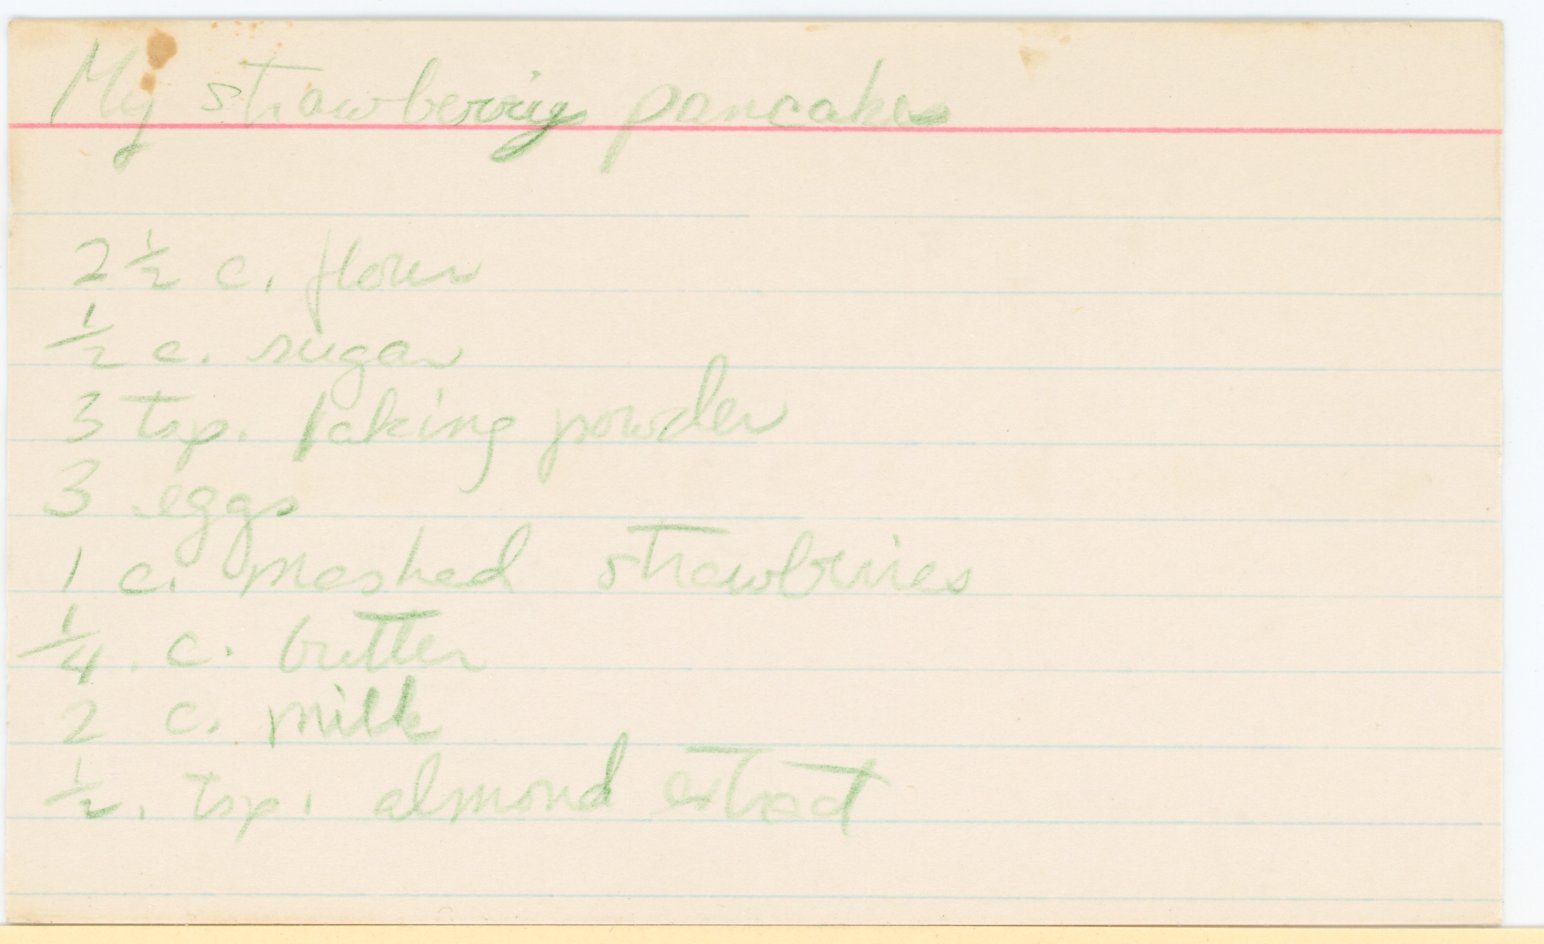 My strawberry pancakes
2 1/2 c. flour
1/2 c. sugar
3 tsp. baking powder
3 eggs
1 c. mashed strawbrries
1/4. c. butter
2 c. milk
1/2. tsp. almond extract